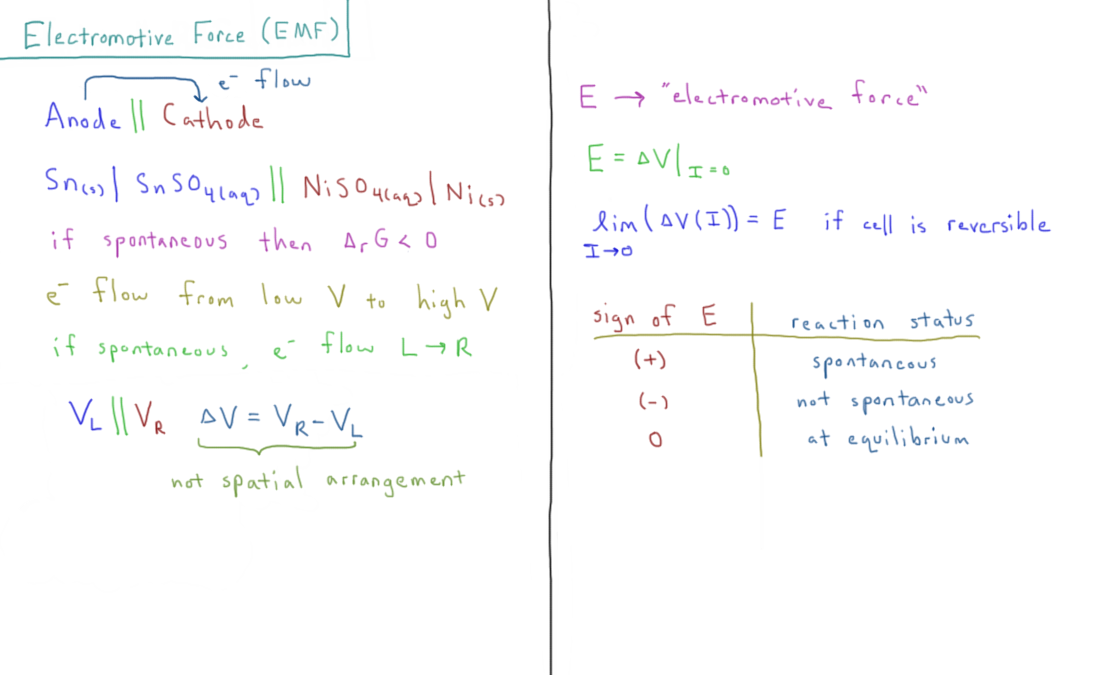 Electromotive Force (EMF)
e⁻ flow
Anode || Cathode
Sn(s) | SnSO₄(aq) || NiSO₄(aq) | Ni(s)
if spontaneous then ΔᵣG < 0
e⁻ flow from low V to high V
if spontaneous, e⁻ flow L → R
V_L || V_R ΔV = V_R - V_L
not spatial arrangement
E → "electromotive force"
E = ΔV|_I=0
lim (ΔV(I)) = E if cell is reversible
I→0
sign of E reaction status
(+) spontaneous
(-) not spontaneous
0 at equilibrium